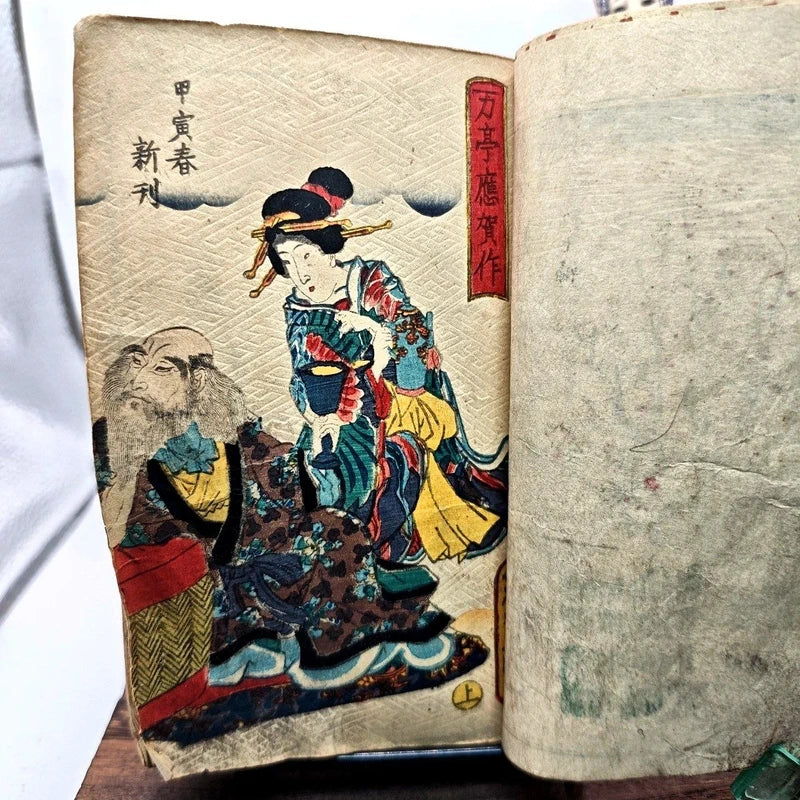 万亭應賀作
甲寅春
新刊
上